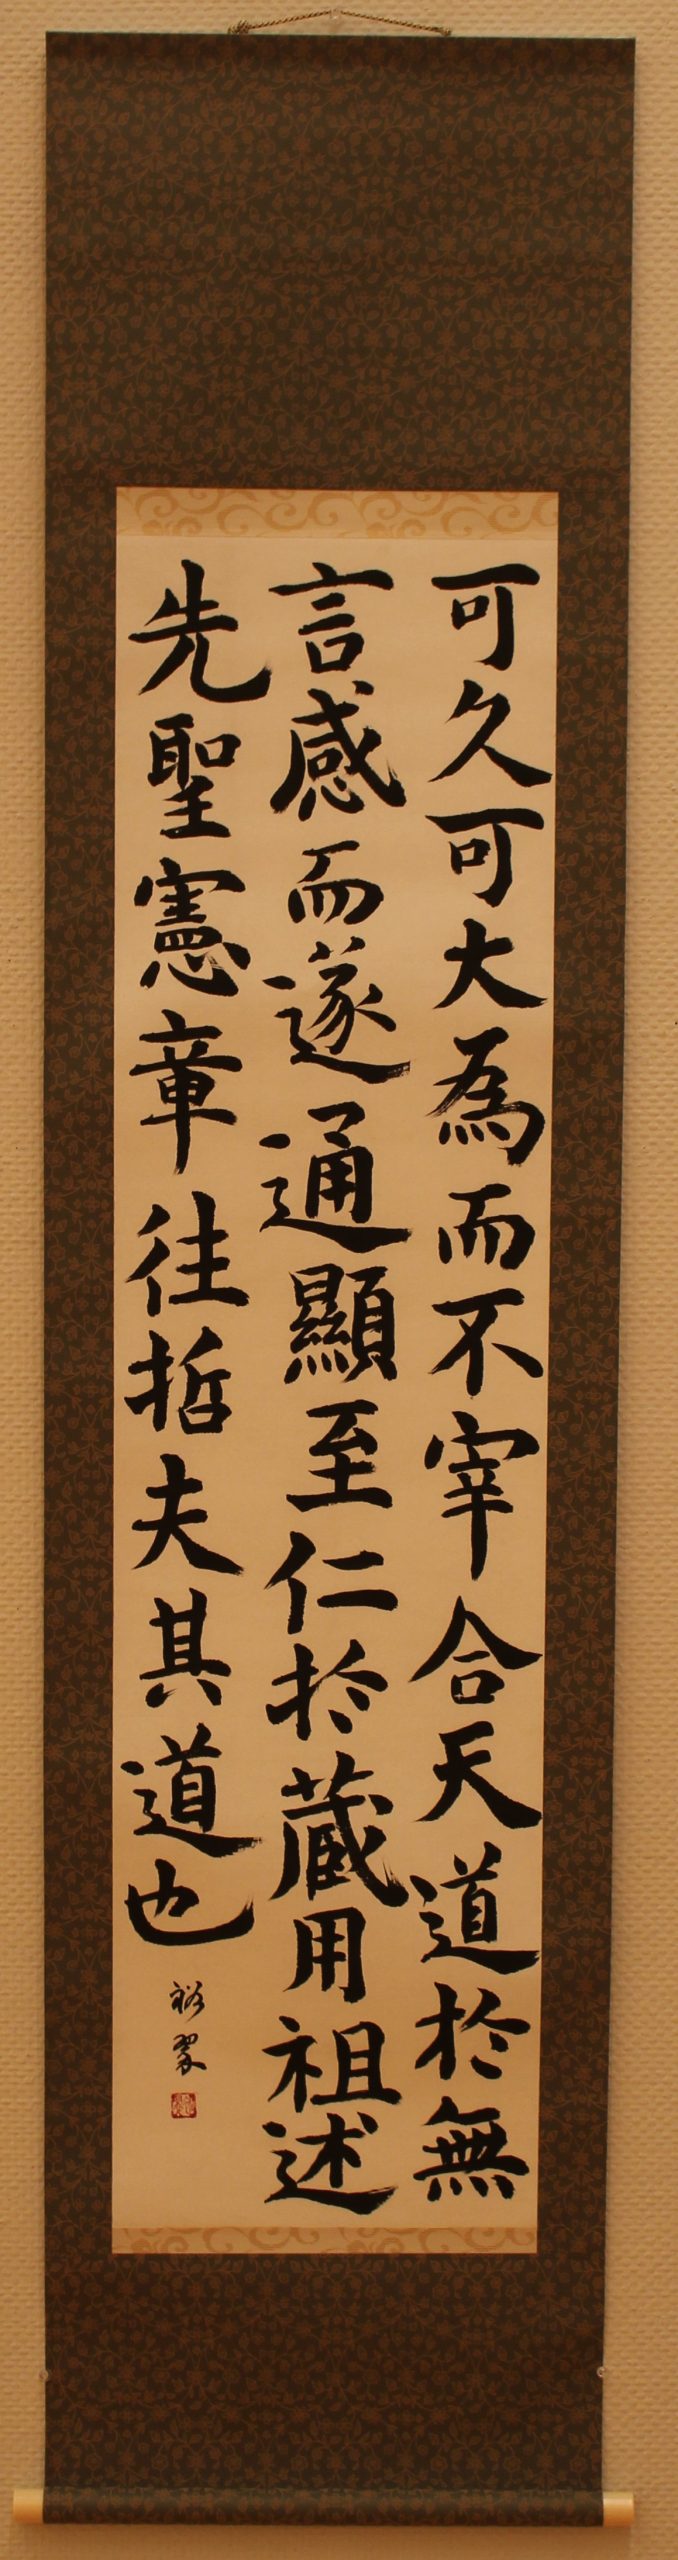 可久可大為而不宰合天道於無
言感而遂通顯至仁於蔵用祖述
先聖憲章往哲夫其道也
裕翠